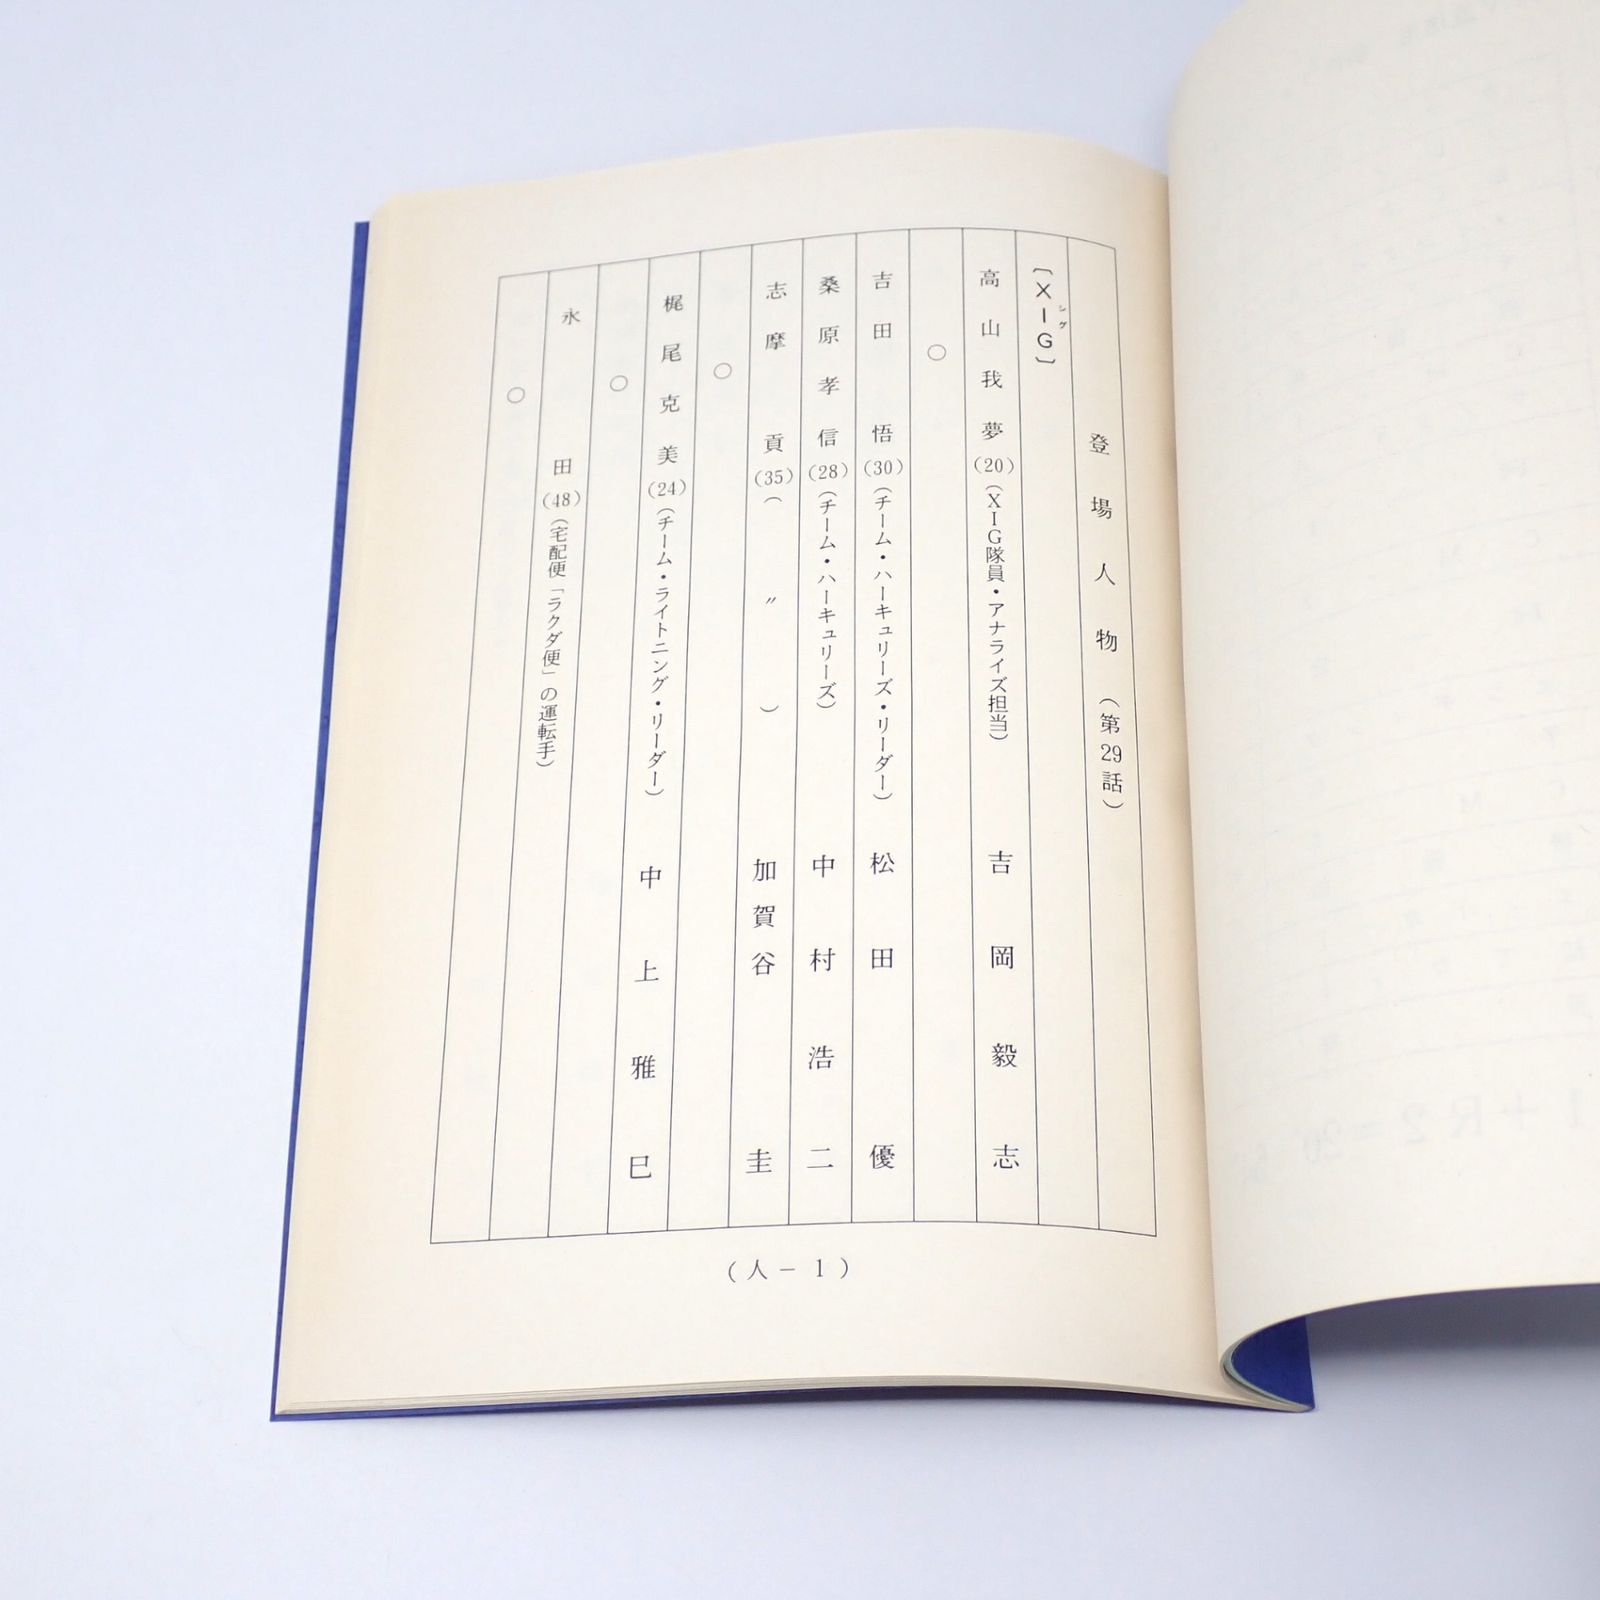 登場人物（第29話）
〔XIG〕
シグ
高山我夢(20)（XIG隊員・アナライズ担当）　吉岡毅志
○
吉田　悟(30)（チーム・ハーキュリーズ・リーダー）　松田　優
桑原孝信(28)（チーム・ハーキュリーズ）　中村浩二
志摩　貢(35)（　〃　）　加賀谷　圭
○
梶尾克美(24)（チーム・ライトニング・リーダー）　中上雅巳
○
永田(48)（宅配便「ラクダ便」の運転手）
○
（人－1）